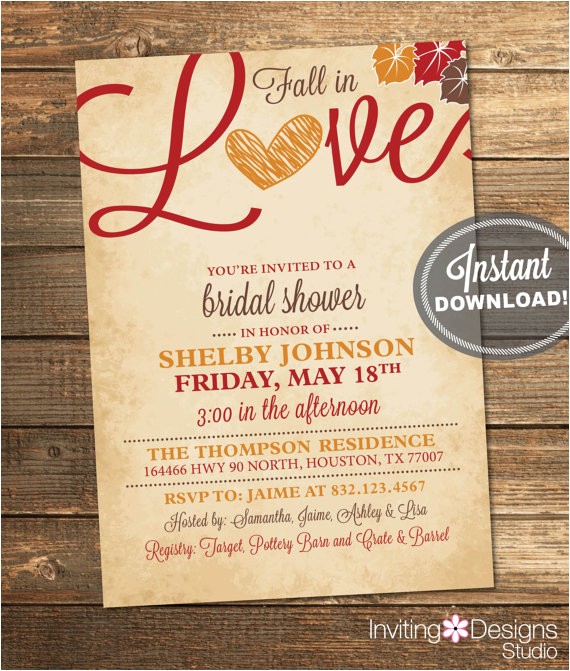 Fall in
Love
YOU'RE INVITED TO A
bridal shower
IN HONOR OF
SHELBY JOHNSON
FRIDAY, MAY 18TH
3:00 in the afternoon
THE THOMPSON RESIDENCE
164466 HWY 90 NORTH, HOUSTON, TX 77007
RSVP TO: JAIME AT 832.123.4567
Hosted by: Samantha, Jaime, Ashley & Lisa
Registry: Target, Pottery Barn and Crate & Barrel
Instant
DOWNLOAD!
Inviting Designs
Studio